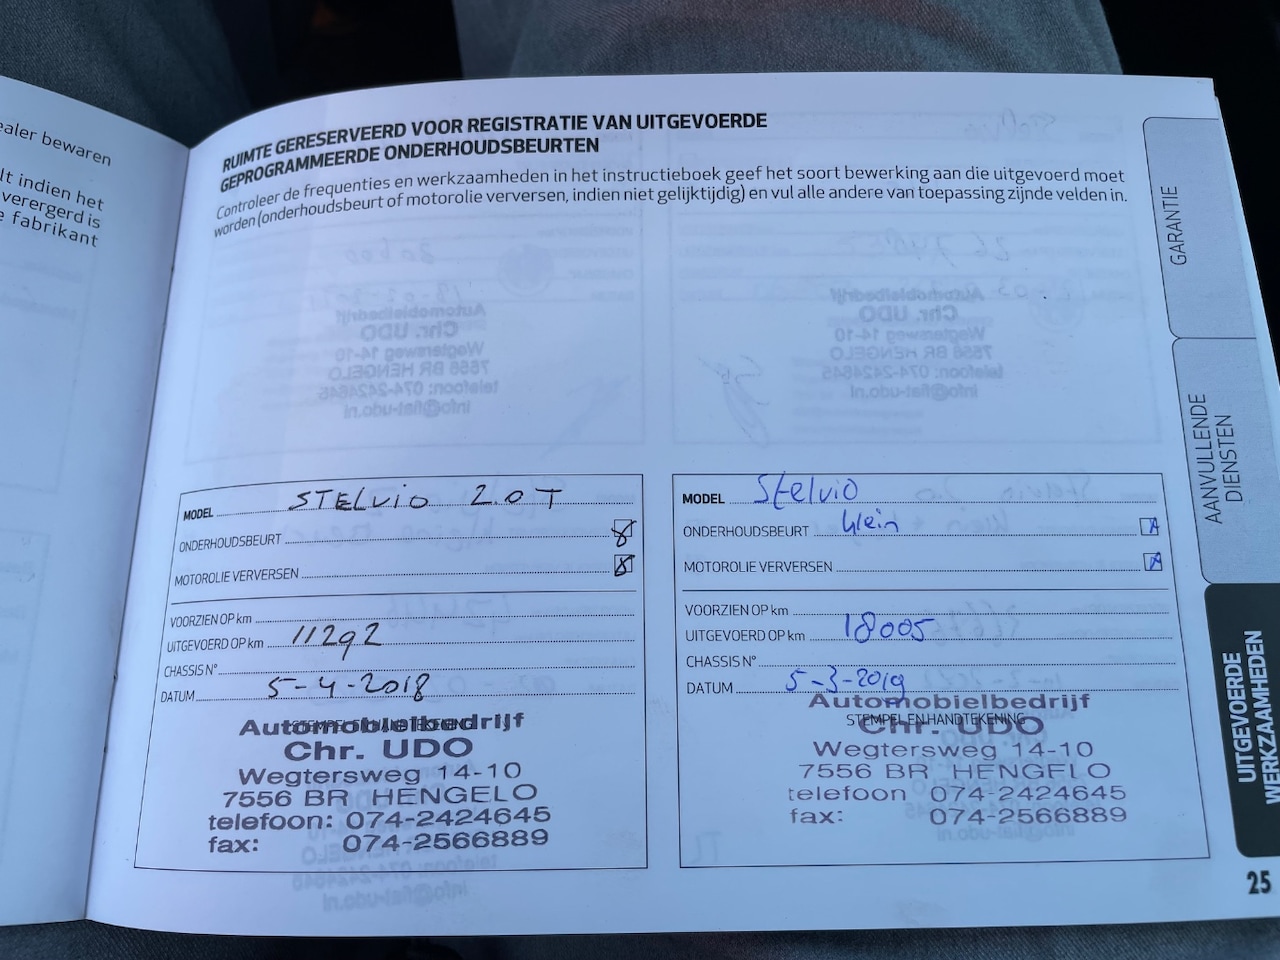 ealer bewaren
lt indien het
verergerd is
e fabrikant
RUIMTE GERESERVEERD VOOR REGISTRATIE VAN UITGEVOERDE
GEPROGRAMMEERDE ONDERHOUDSBEURTEN
Controleer de frequenties en werkzaamheden in het instructieboek geef het soort bewerking aan die uitgevoerd moet
worden (onderhoudsbeurt of motorolie verversen, indien niet gelijktijdig) en vul alle andere van toepassing zijnde velden in.
MODEL STELVIO 2.0 T
ONDERHOUDSBEURT
MOTOROLIE VERVERSEN
VOORZIEN OP km
UITGEVOERD OP km 11292
CHASSIS N°
DATUM 5-4-2018
STEMPEL EN HANDTEKENING
Automobielbedrijf
Chr. UDO
Wegtersweg 14-10
7556 BR HENGELO
telefoon: 074-2424645
fax: 074-2566889
MODEL Stelvio
ONDERHOUDSBEURT klein
MOTOROLIE VERVERSEN
VOORZIEN OP km
UITGEVOERD OP km 18005
CHASSIS N°
DATUM 5-3-2019
Automobielbedrijf
STEMPEL EN HANDTEKENING
Chr. UDO
Wegtersweg 14-10
7556 BR HENGELO
telefoon 074-2424645
fax: 074-2566889
GARANTIE
AANVULLENDE
DIENSTEN
UITGEVOERDE
WERKZAAMHEDEN
25